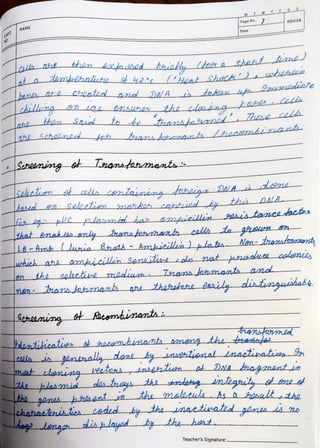 NAME
M T W T F S S
Page No.: 7
Date:
YOUVA
cells are then exposed briefly (for a short time)
at a temperature of 42°c ('Heat Shock'), wherein
pores are created and DNA is taken up. Immediate
chilling on ice ensures the closing pores. Cells
are then said to be 'transformed'. These cells
are screened for transformants / recombinants.
• Screening of Transformants :-
Selection of cells containing foreign DNA is done
based on selection marker carried by this DNA.
For eg:- pUC plasmid has ampicillin resistance factor
that enables only transformants cells to grown on
LB-Amp (Luria Broth - Ampicillin) plates. Non-transformants
which are ampicillin sensitive, do not produce colonies
on the selective medium. Transformants and
non-transformants are therefore easily distinguishable.
Screening of Recombinants :-
Identification of recombinants among the transformed
cells is generally done by insertional inactivation. In
most cloning vectors, insertion of DNA fragment in
the plasmid destroys the integrity of one of
the genes present in the molecule. As a result, the
characteristics coded by the inactivated genes is no
longer displayed by the host.
Teacher's Signature